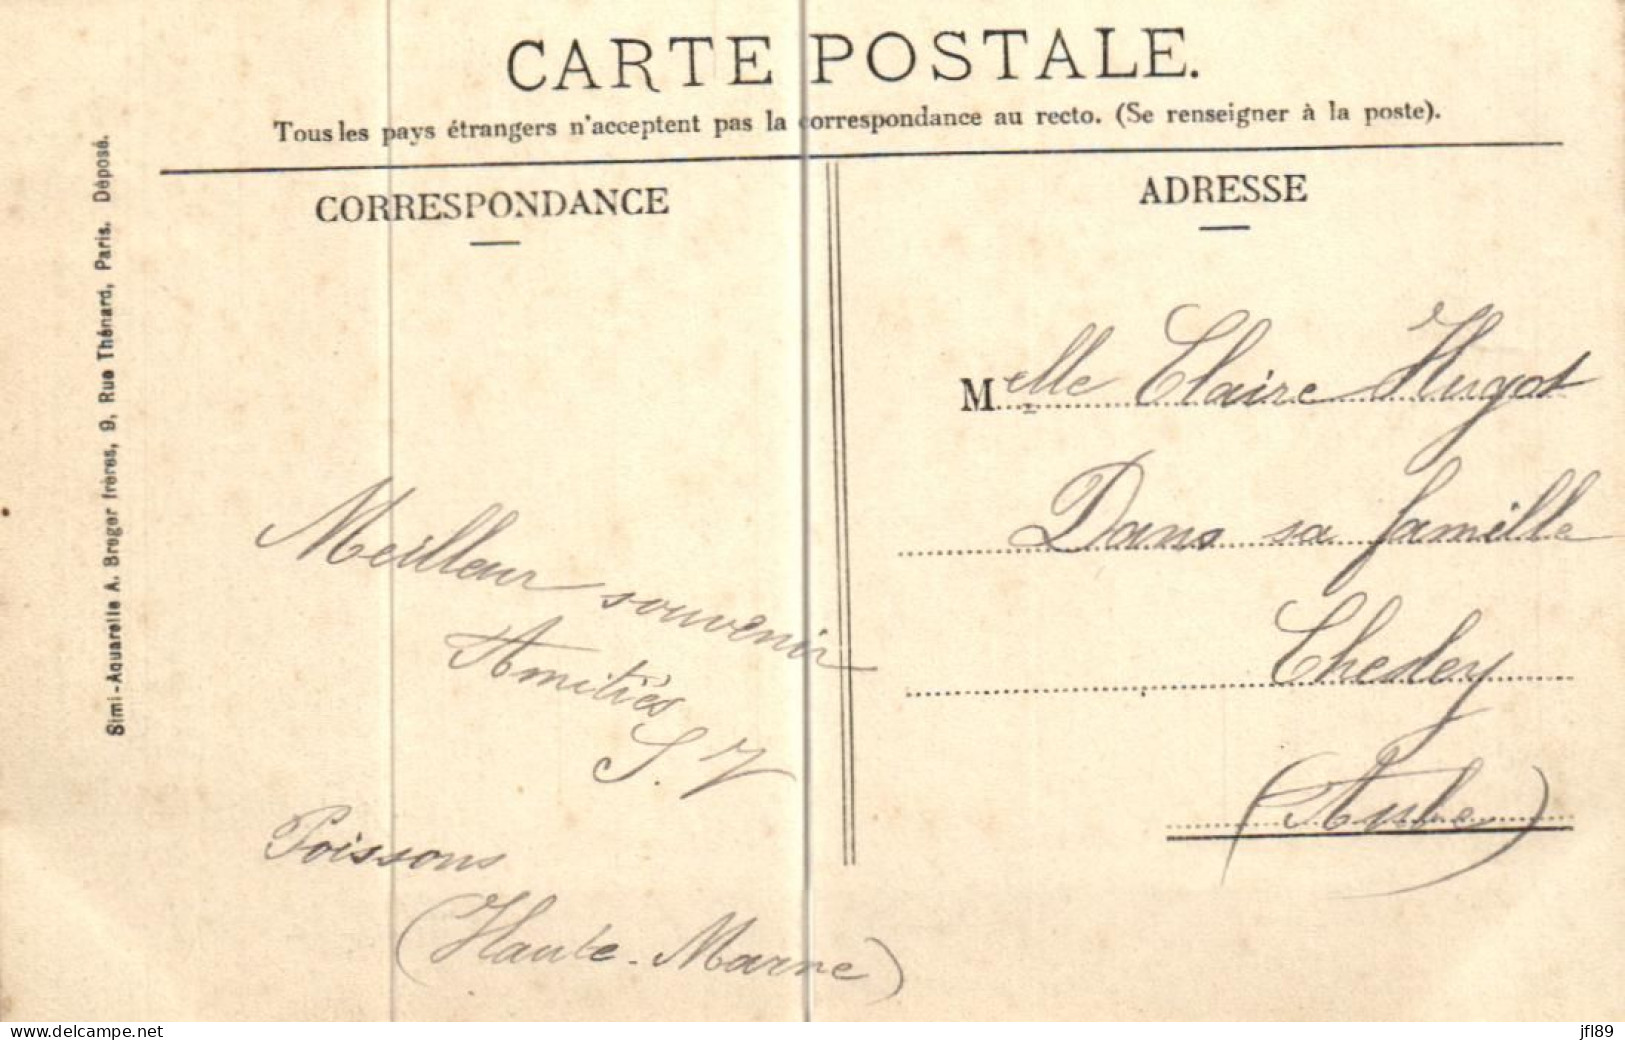 CARTE POSTALE.
Tous les pays étrangers n'acceptent pas la correspondance au recto. (Se renseigner à la poste).
CORRESPONDANCE
ADRESSE
Simi-Aquarelle A. Breger frères, 9, Rue Thénard, Paris. Déposé.
Meilleur souvenir
Amitiés
Poissons
(Haute-Marne)
Melle Claire Hugot
Dans sa famille
Chesley
(Aube)
www.delcampe.net
jfl89